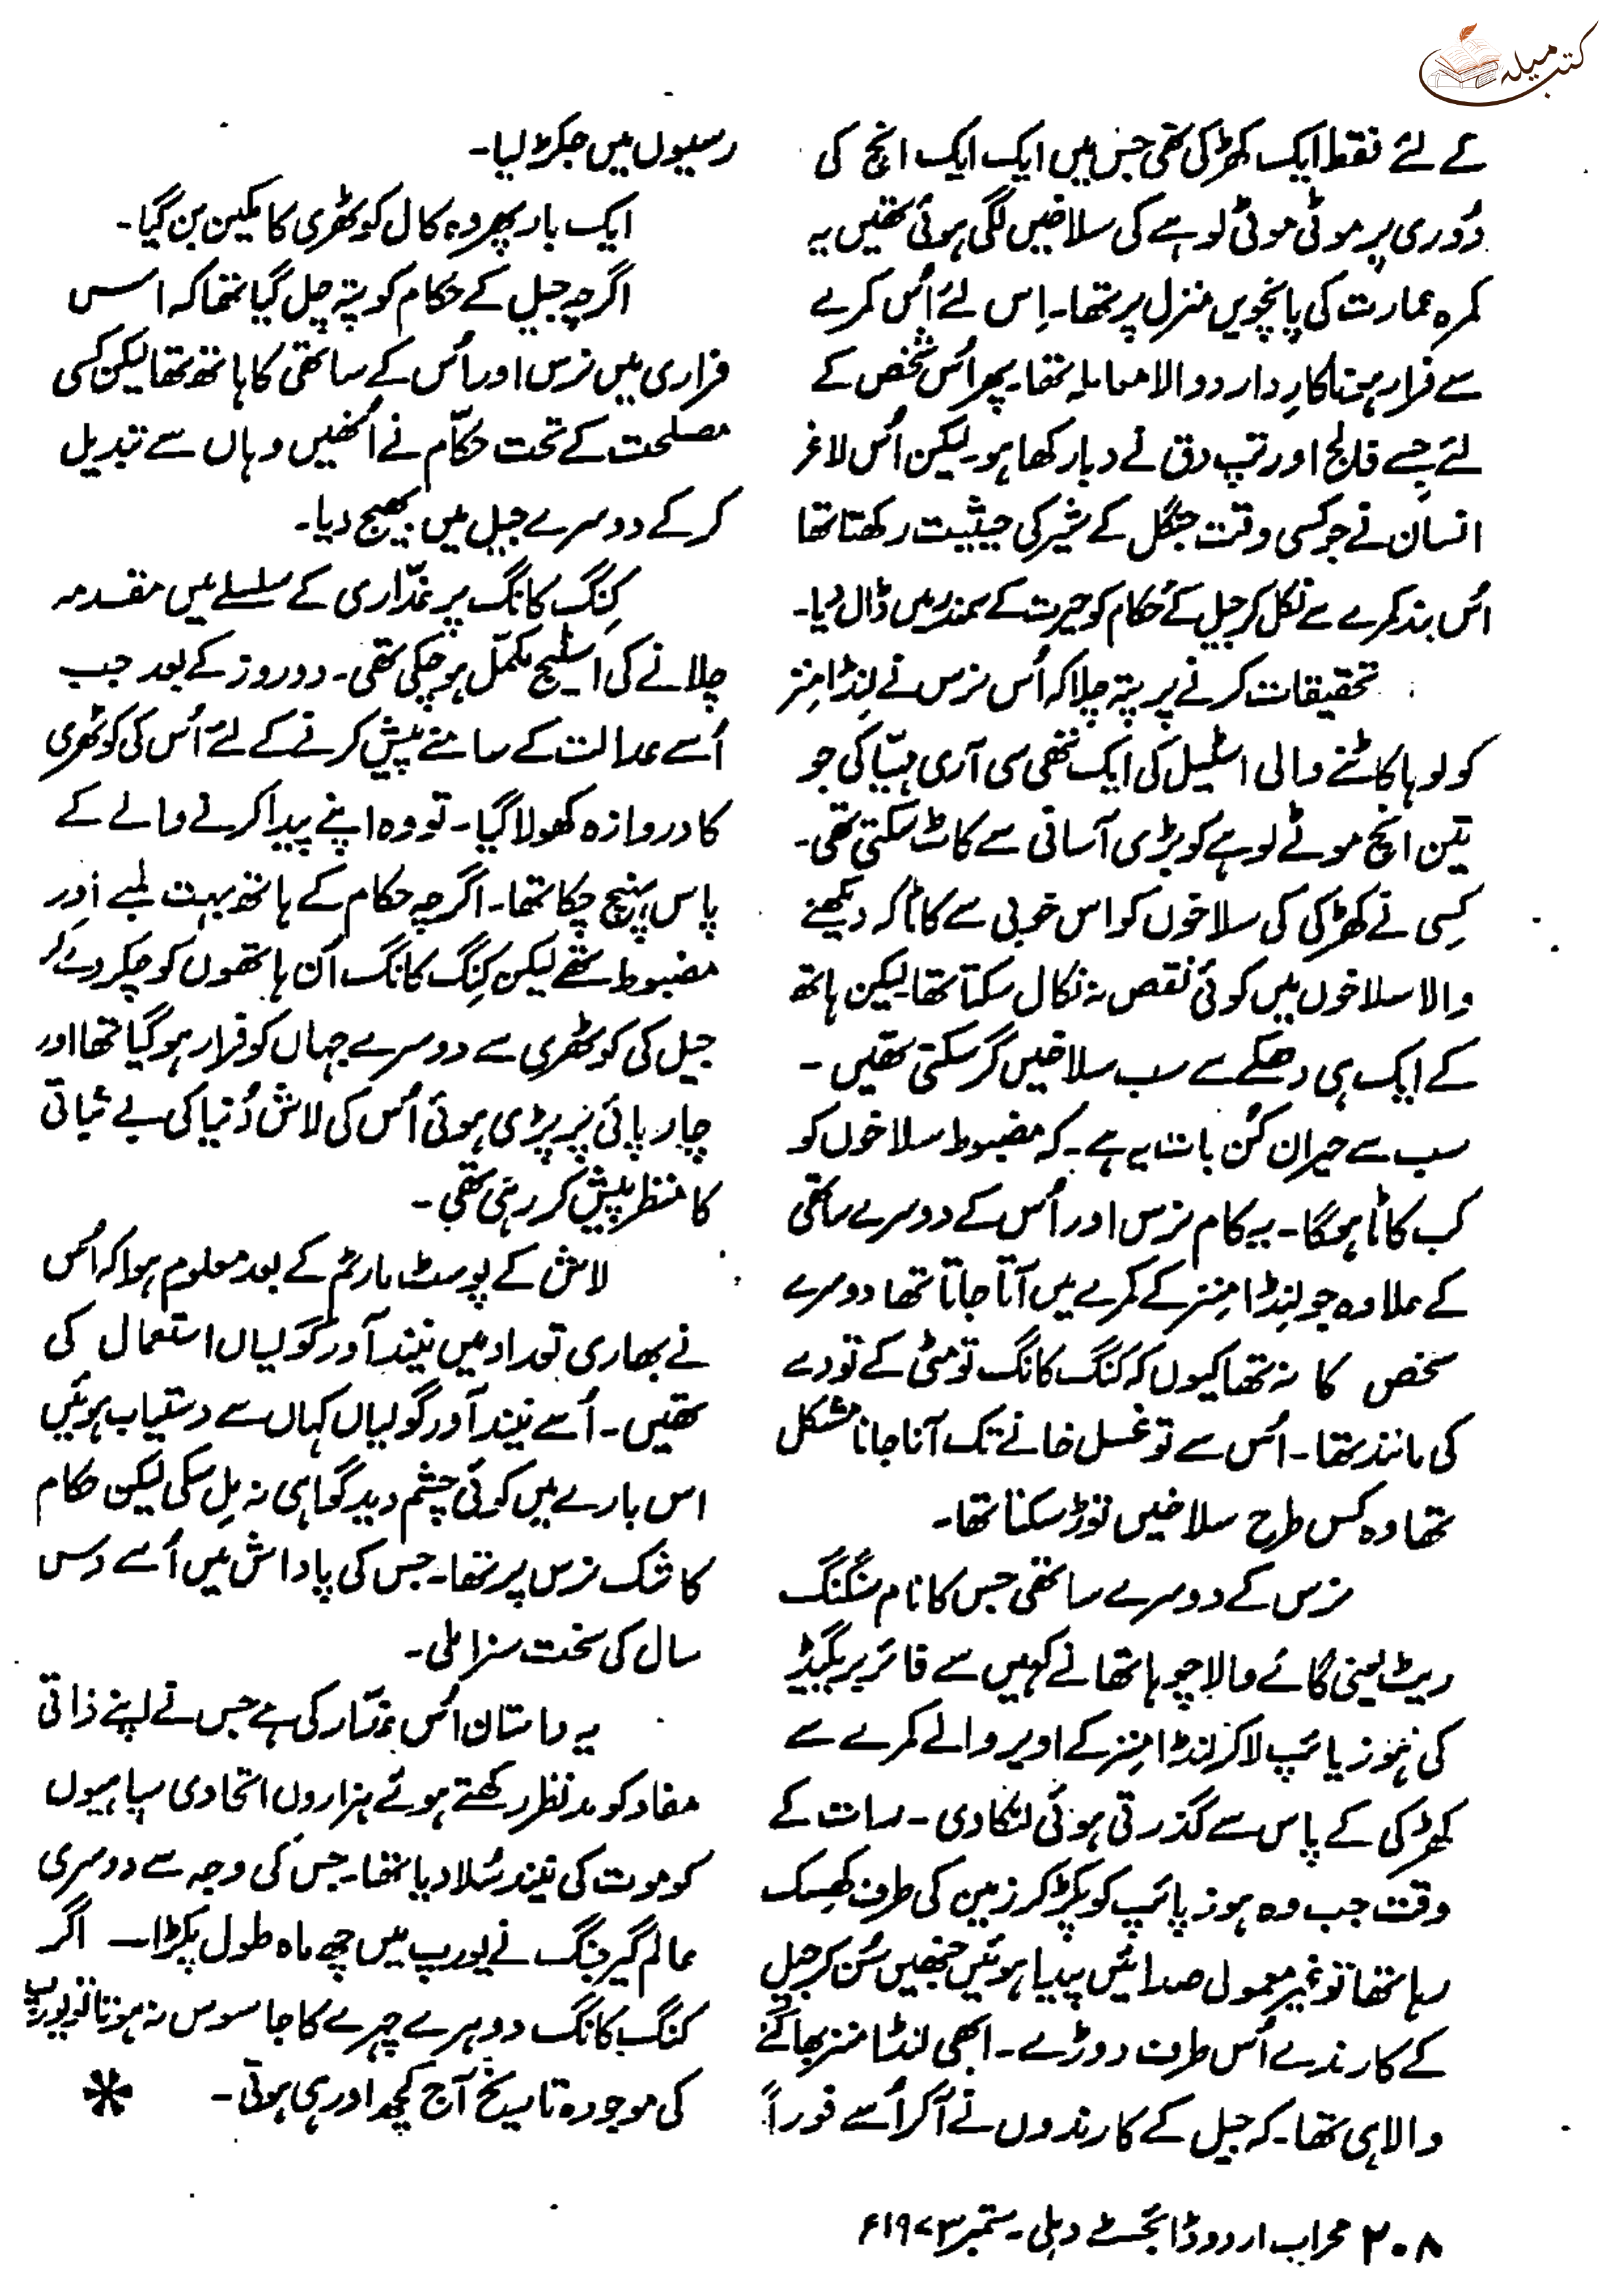 کتب میلہ
کے لئے فقط ایک کھڑکی تھی جس میں ایک ایک انچ کی
دُوری پر موٹی موٹی لوہے کی سلاخیں لگی ہوئی تھیں یہ
کمرہ عمارت کی پانچویں منزل پر تھا۔ اِس لئے اُس کمرے
سے فرار ہونا کارِ دارد والا معاملہ تھا۔ پھر اُس شخص کے
لئے جسے فالج اور تپ دق نے دبا رکھا ہو۔ لیکن اُس لاغر
انسان نے جو کسی وقت جنگل کے شیر کی حیثیت رکھتا تھا
اُس بند کمرے سے نکل کر جیل کے حکام کو حیرت کے سمندر میں ڈال دیا۔
تحقیقات کرنے پر پتہ چلا کہ اُس نرس نے لنڈا منز
کو لوہا کاٹنے والی اسٹیل کی ایک ننھی سی آری مہیّا کی جو
تین انچ موٹے لوہے کو بڑی آسانی سے کاٹ سکتی تھی۔
کِسی نے کھڑکی کی سلاخوں کو اس خوبی سے کاٹا کہ دیکھنے
والا سلاخوں میں کوئی نقص نہ نکال سکتا تھا لیکن ہاتھ
کے ایک ہی دھکے سے سب سلاخیں گر سکتی تھیں ۔
سب سے حیران کُن بات یہ ہے۔ کہ مضبوط سلاخوں کو
کب کاٹا ہوگا۔ یہ کام نرس اور اُس کے دوسرے ساتھی
کے علاوہ جو لِنڈا مِنز کے کمرے میں آتا جاتا تھا دوسرے
شخص کا نہ تھا کیوں کہ کنگ کانگ تو مٹی کے تودے
کی مانند تھا۔ اُس سے تو غسل خانے تک آنا جانا مشکل
تھا وہ کس طرح سلاخیں توڑ سکتا تھا۔
نرس کے دوسرے ساتھی جس کا نام سنگنگ
ریٹ یعنی گانے والا چوہا تھا نے کہیں سے فائر بریگیڈ
کی ہوز پائپ لاکر لنڈا مِنز کے اوپر والے کمرے سے
کھڑکی کے پاس سے گذرتی ہوئی لٹکا دی۔ رات کے
وقت جب وہ ہوز پائپ کو پکڑ کر زمین کی طرف کھِسک
رہا تھا تو غیر معمولی صدائیں پیدا ہوئیں جنھیں سُن کر جیل
کے کارندے اُس طرف دوڑے۔ ابھی لنڈا منز بھاگنے
والا ہی تھا۔ کہ جیل کے کارندوں نے آکر اُسے فوراً
رسیوں میں جکڑ لیا۔
ایک بار پھر وہ کال کوٹھری کا مکین بن گیا۔
اگرچہ جیل کے حکام کو پتہ چل گیا تھا کہ اس
فراری میں نرس اور اُس کے ساتھی کا ہاتھ تھا لیکن کسی
مصلحت کے تحت حکّام نے اُنھیں وہاں سے تبدیل
کر کے دوسرے جیل میں بھیج دیا۔
کِنگ کانگ پر غدّاری کے سلسلے میں مقدمہ
چلانے کی اسٹیج مکمّل ہو چکی تھی۔ دو روز کے بعد جب
اُسے عدالت کے سامنے پیش کرنے کے لئے اُس کی کوٹھری
کا دروازہ کھولا گیا۔ تو وہ اپنے پیدا کرنے والے کے
پاس پہنچ چکا تھا۔ اگرچہ حکام کے ہاتھ بہت لمبے اور
مضبوط تھے لیکن کِنگ کانگ اُن ہاتھوں کو چکر دے کر
جیل کی کوٹھری سے دوسرے جہاں کو فرار ہو گیا تھا اور
چارپائی پر پڑی ہوئی اُس کی لاش دُنیا کی بے ثباتی
کا منظر پیش کر رہی تھی۔
لاش کے پوسٹ مارٹم کے بعد معلوم ہوا کہ اُس
نے بھاری تعداد میں نیند آور گولیاں استعمال کی
تھیں۔ اُسے نیند آور گولیاں کہاں سے دستیاب ہوئیں
اس بارے میں کوئی چشم دید گواہی نہ مِل سکی لیکن حکام
کا شک نرس پر تھا۔ جس کی پاداش میں اُسے دس
سال کی سخت سزا ملی۔
یہ داستان اُس غدّار کی ہے جس نے اپنے ذاتی
مفاد کو مدنظر رکھتے ہوئے ہزاروں اتحادی سپاہیوں
کو موت کی نیند سُلا دیا تھا۔ جس کی وجہ سے دوسری
عالم گیر جنگ نے یورپ میں چھ ماہ طول پکڑا۔ اگر
کنگ کانگ دوہرے چہرے کا جاسوس نہ ہوتا تو یورپ
کی موجودہ تاریخ آج کچھ اور ہی ہوتی۔ *
۲۰۸ محراب اردو ڈائجسٹ دہلی۔ ستمبر ۱۹۷۳ء